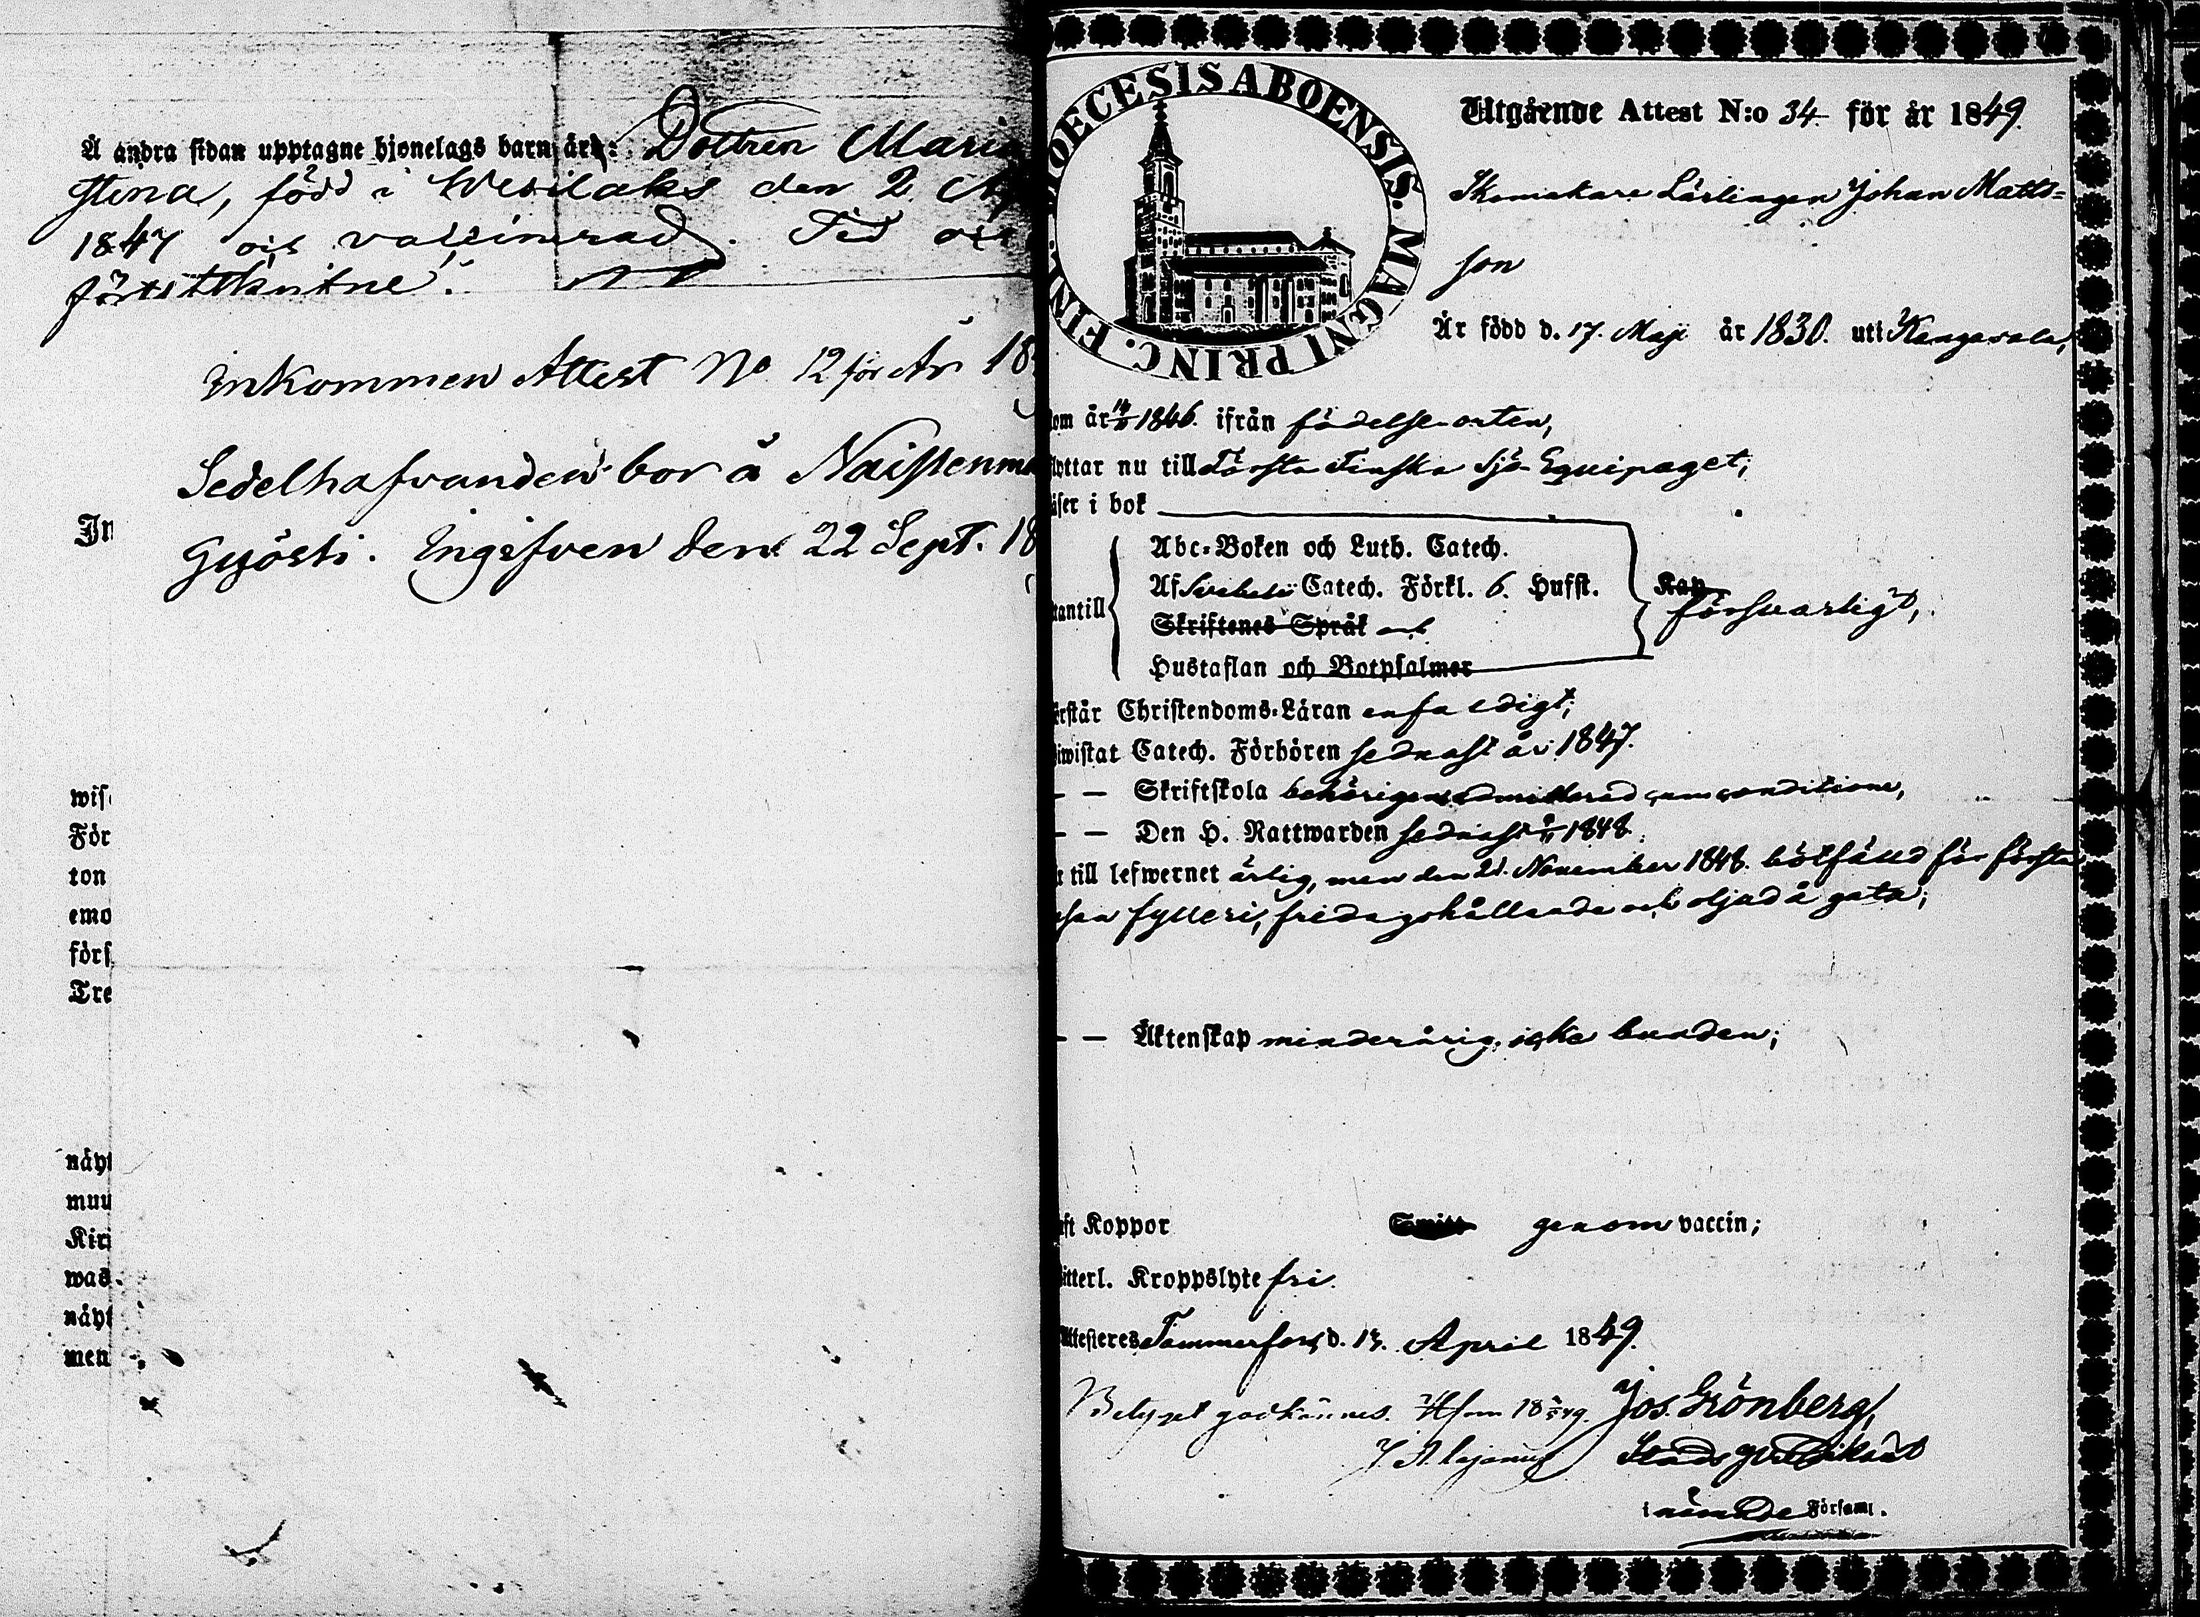 Å andra sidan upptagne hjonelags barn är: Dottren Maria
Stina, född i Wesilaks den 2
1847 och vaccinerad.
Inkommen Attest No 12 för År 18
Sedelhafvanden bor å
Gyösti. Ingifven den 22 Sept. 18
In
wis
För
ton
emo
förs
Tre
näyt
muu
Kir
was
näyt
men
DIOECESIS ABOENSIS. MAGNI PRINC. FINL.
Utgående Attest N:o 34 för år 1849.
Skomakare Lärlingen Johan Matts-
son
Är född d. 17. Maji år 1830. uti Kangasala,
kom år 1846. ifrån födelse-orten,
flyttar nu till Första Finska Sjö Equipaget;
läser i bok
utantill
Abc-Boken och Luth. Catech.
Af Svebelii Catech. Förkl. 6. Hufst.
Skriftenes Språk och
Hustaflan och Botpsalmer
försvarligt,
förstår Christendoms-Läran enfaldigt;
biwistat Catech. Förhören sednast år 1847.
— — Skriftskola behörigen admitterad cum conditione,
— — Den H. Nattwarden sednast 1848.
till lefwernet ärlig, men den 21. November 1848. bötfälld för första
resan fylleri, fridagshållande och oljud å gata;
— — Äktenskap minderårig, icke bunden;
haft Koppor genom vaccin;
Kroppslyte fri.
Attesteres Tammerfors, d. 13. April 1849.
Betyget godkännes. Jos. Grönberg,
i nämnde Församl.